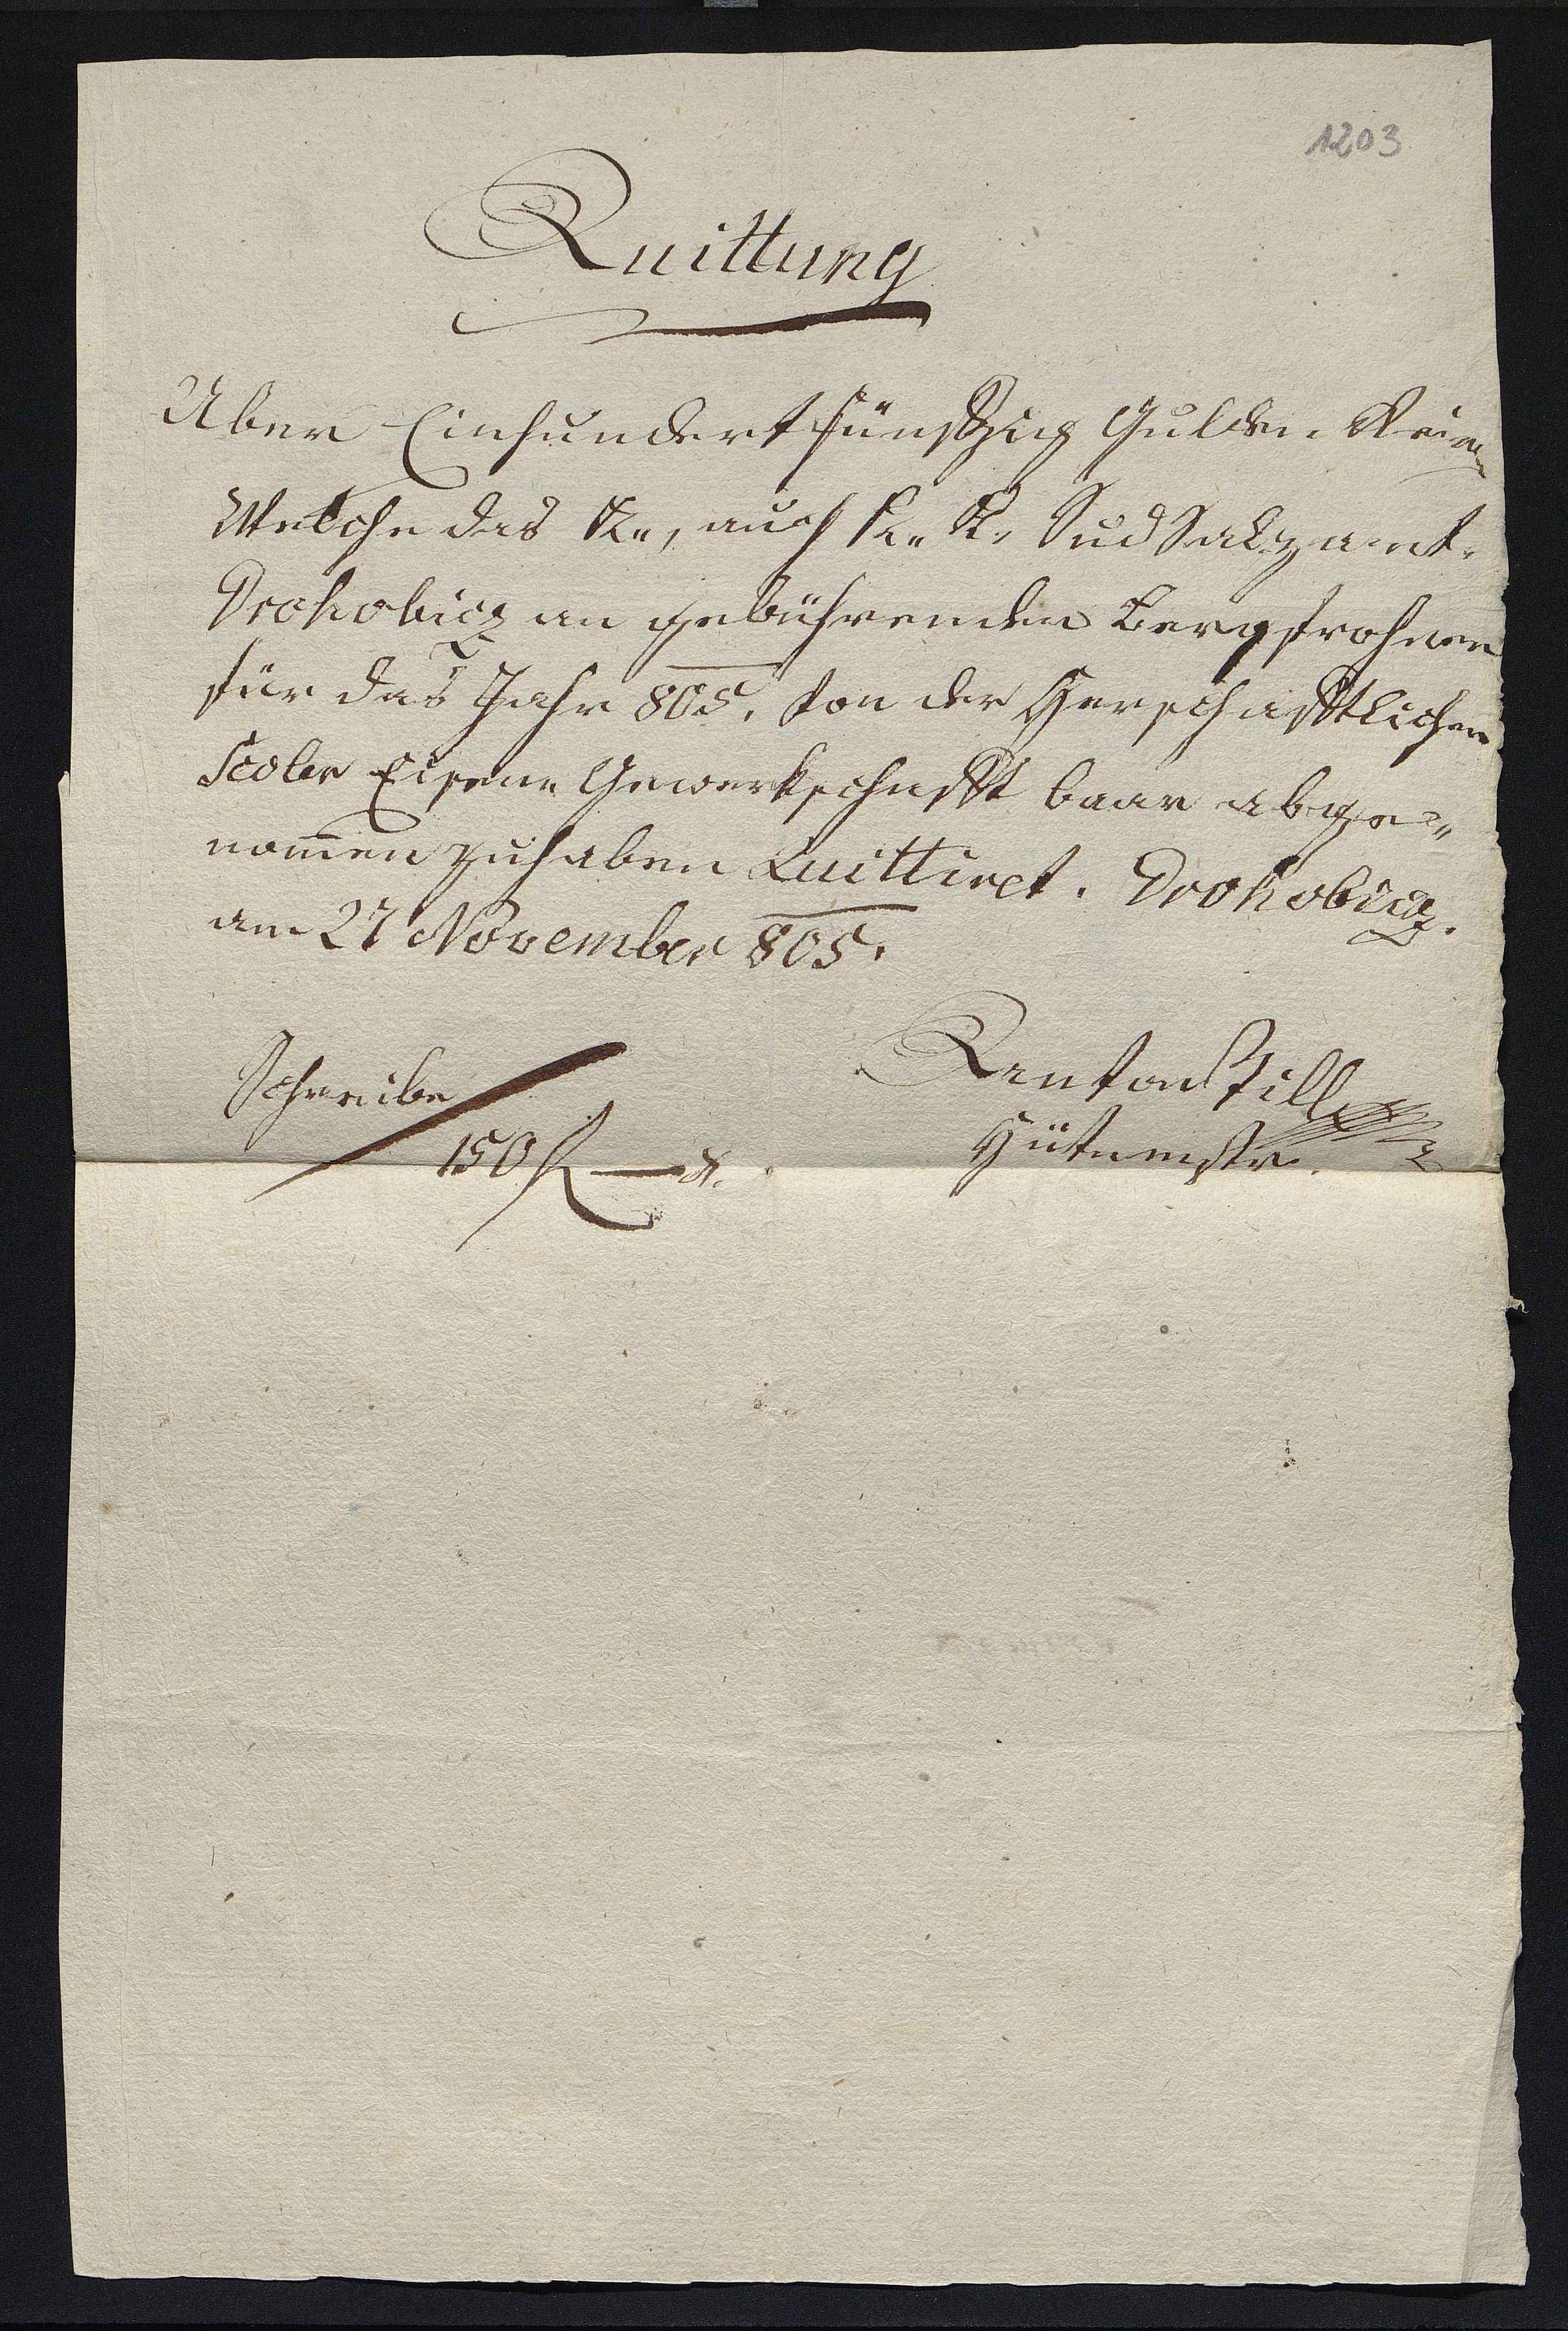 1203
Quittung
Über Einhundert fünffzig Gulden Rein
Welche das K., auch K. K. Sud Salzamt
Drohobicz an gebührenden Bergfrohnen
für das Jahr 805. von der Herschafftlichen
Scoler Eisen Gewerkschafft baar abge=
nom̄en zuhaben Quittiret. Drohobicz.
am 27 November 805.
Schreibe
150 f
Anton Pill
Hütenmstr.